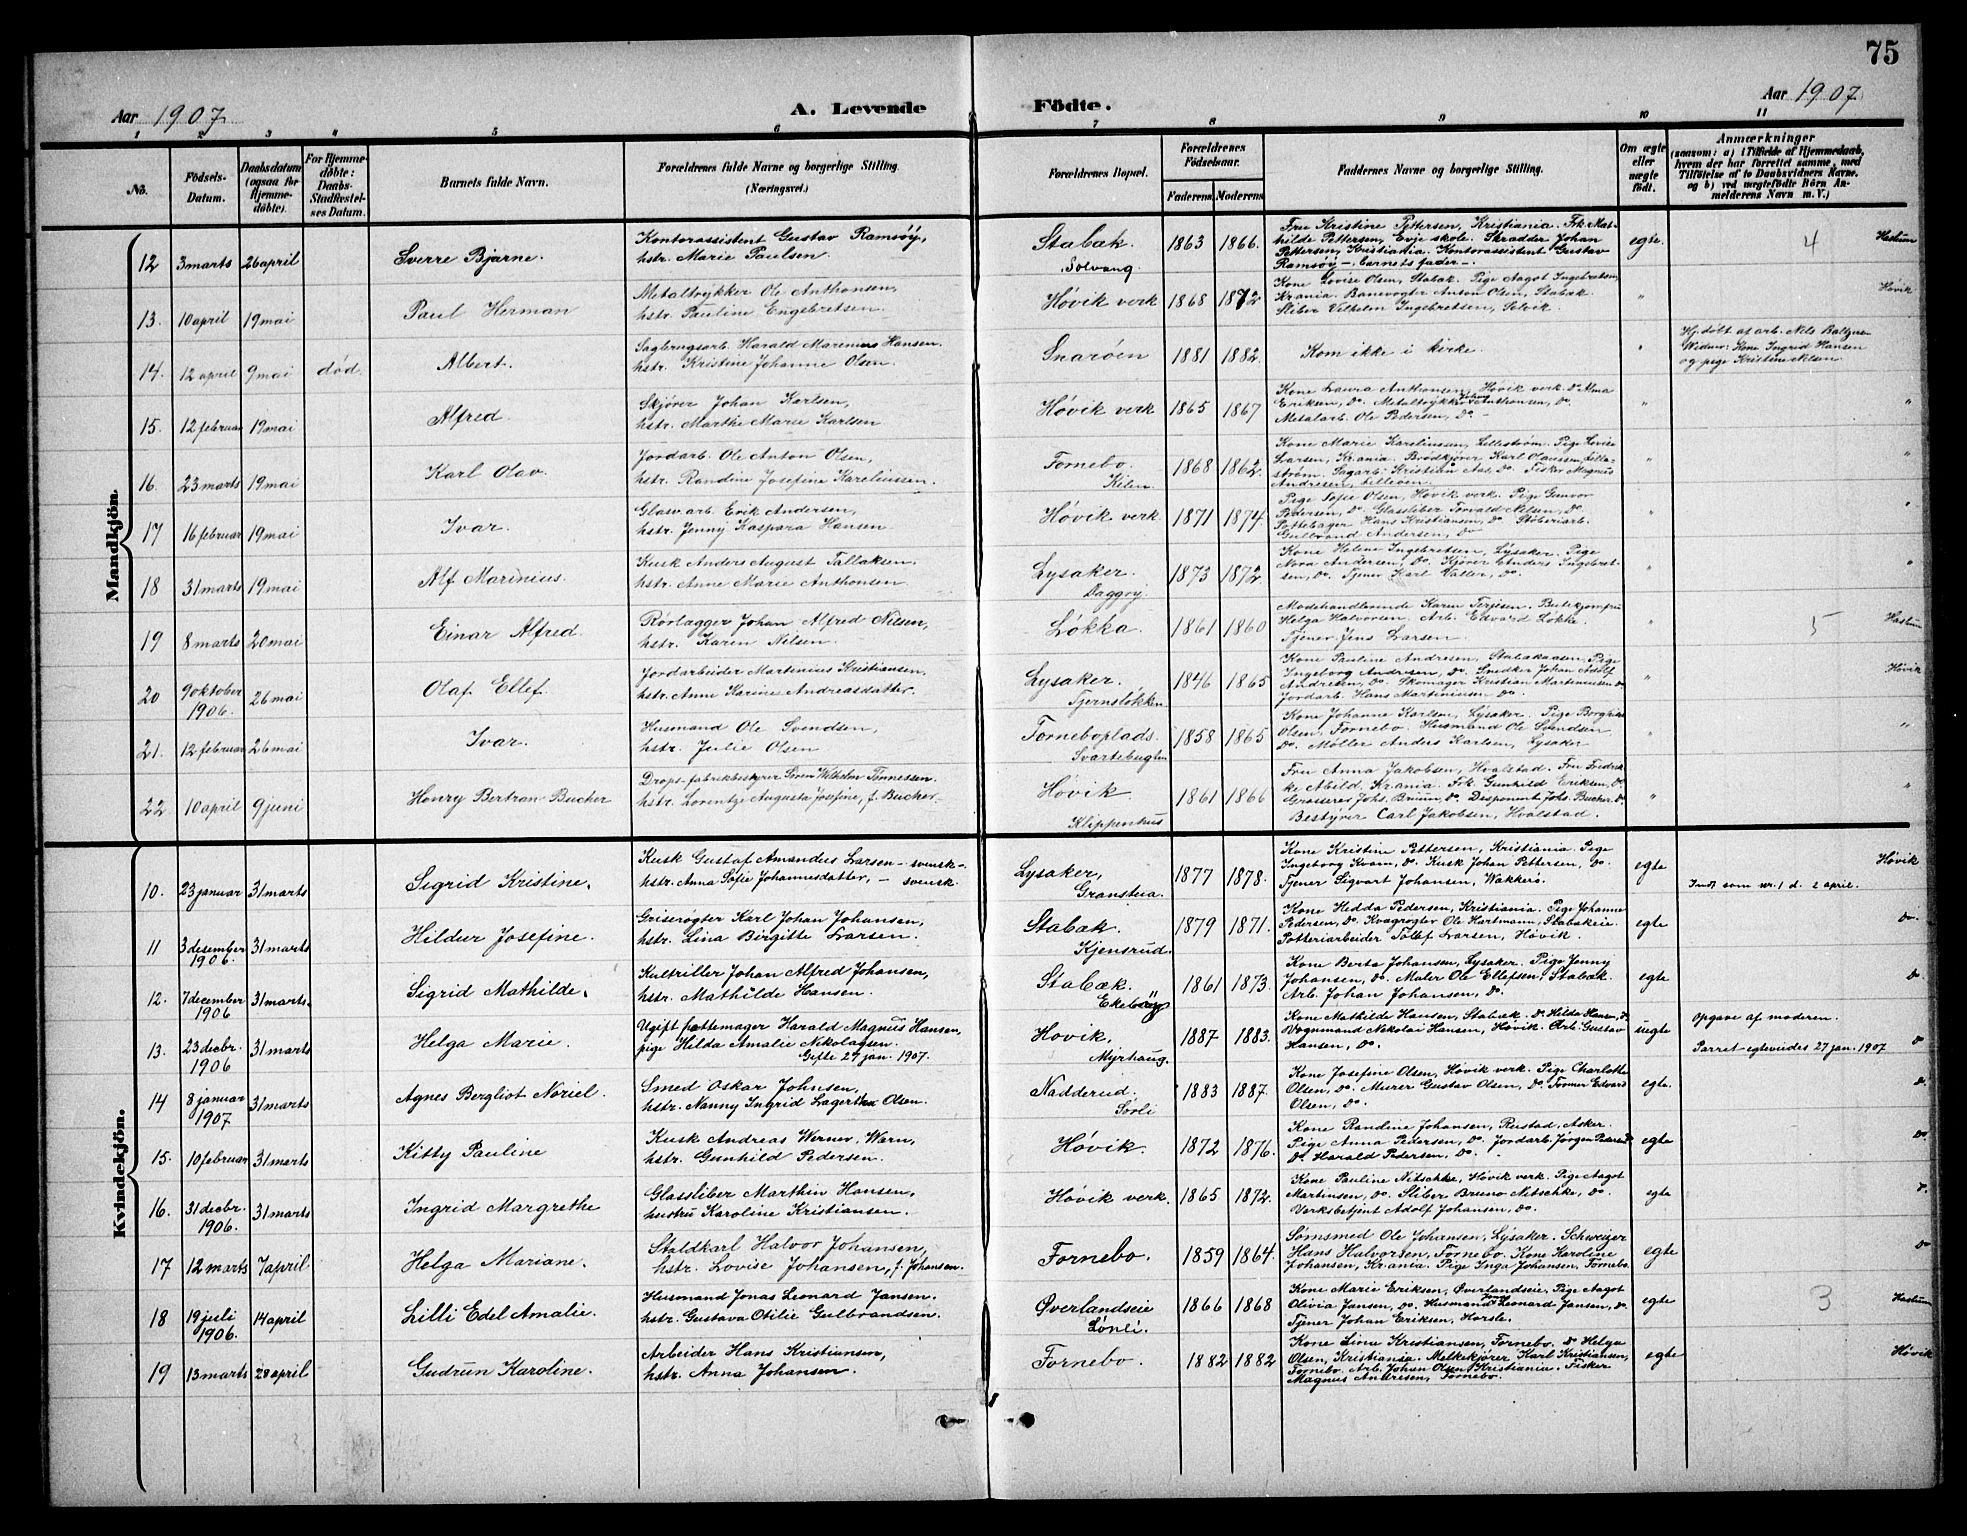 75
Aar 1907
A. Levende Födte.
Aar 1907
1 2 3 4 5 6 7 8 9 10 11
No.
Födsels-Datum.
Daabsdatum (ogsaa for Hjemmedöbte).
For Hjemmedöbte: Daabs-Stadfæstelses Datum.
Barnets fulde Navn.
Forældrenes fulde Navne og borgerlige Stilling. (Næringsvei.)
Forældrenes Bopæl.
Forældrenes Födselsaar.
Faderens Moderens
Faddernes Navne og borgerlige Stilling.
Om ægte eller uægte födt.
Anmærkninger
(saasom: a) i Tilfælde af Hjemmedaab, hvem der har forrettet samme, med Tilföielse af to Daabsvidners Navne. og b) ved uægtefödte Börn Anmelderens Navn m. V.)
Mandkjön.
12 3 marts 26 april Sverre Bjarne.
Kontorassistent Gustav Ramsøy,
hstr. Marie Paulsen.
Stabæk.
Solvang.
1863 1866.
Fru Kristine Pettersen, Kristiania. Frk. Mat-
hilde Pettersen, Evje skole. Skrædder Johan
Pettersen, Kristiania. Kontorassistent Gustav
Ramsøy – barnets fader –
egte. 4 Haslum
13. 10 april 19 mai Paul Herman
Metaltrykker Ole Anthonsen,
hstr. Pauline Engebretsen.
Høvik verk 1868 1872
Kone Lovise Olsen, Stabæk. Pige Aagot Ingebretsen,
Krania. Banevogter Anton Olsen, Stabæk.
Sliber Vilhelm Ingebretsen,
" Høvik
14. 12 april 9 mai død. Albert.
Sagbrugsarb. Harald Marenius Hansen.
hstr. Kristine Johanne Olsen.
Snarøen 1881 1882.
Kom ikke i kirke.
"
Hj. døbt af arb. Nils Baltzersen
Vidner: Kone Ingrid Hansen
og pige Kristine Nilsen.
15. 12 februar 19 mai Alfred.
Skjører Johan Karlsen,
hstr. Marthe Marie Karlsen
Høvik verk 1865 1867
Kone Laura Anthonsen, Høvik verk. Do Alma
Eriksen, do. Metaltrykker Johan Anthonsen, do.
Metalarb. Ole Pedersen, do –
" "
16. 23 marts 19 mai Karl Olav.
Jordarb. Ole Anton Olsen,
hstr. Randine Josefine Kareliussen.
Fornebo.
Kilen.
1868 1862.
Kone Marie Kareliussen, Lillestrøm. Pige Lovise
Larsen, Krania. Brødkjører Karl Olaussen, Lille-
strøm. Sagarb. Kristian Aas, do. Fisker Magnus
Andresen, Lilleøen.
" "
17 16 februar 19 mai Ivar.
Glasv.arb. Erik Andersen,
hstr. Jenny Kaspara Hansen
Høvik verk 1871 1874.
Pige Sofie Olsen, Høvik verk. Pige Gunvor
Pedersen, do. Glassliber Torvald Nilsen, do.
Pottebager Hans Kristiansen, do. Støberiarb.
Gulbrand Andersen, do
" "
18 31 marts 19 mai Alf Marinius.
Kusk Anders August Tallaksen,
hstr. Anne Marie Anthonsen
Lysaker.
Daggry.
1873 1872.
Kone Helene Ingebretsen, Lysaker. Pige
Nora Andersen, do. Kjører Anders Ingebret-
sen, do. Tjener Karl Vatler, do.
" "
19 8 marts 20 mai Einar Alfred.
Rørlægger Johan Alfred Nilsen,
hstr. Karen Nilsen.
Løkka. 1861 1860
Modehandlerinde Karen Terjesen. Butikjomfru
Helga Halvorsen. Arb. Edvard Løkke.
Tjener Jens Larsen
" 5 Haslum
20 9 oktober 1906. 26 mai Olaf Ellef.
Jordarbeider Martinius Kristiansen,
hstr. Anne Karine Andreasdatter.
Lysaker.
Tjernsløkken
1846 1865
Kone Pauline Andresen, Stabækaasen, Pige
Ingeborg Andresen, do. Snedker Johan Adolf
Andresen, do. Skomager Kristian Martiniusen do
Jordarb. Hans Martiniusen do.
" Høvik
21. 12 februar 26 mai Ivar.
Husmand Ole Svendsen,
hstr. Julie Olsen
Forneboplads.
Svartebugten
1858 1865
Kone Johanne Karlsen, Lysaker. Pige Borghild
Olsen, Fornebo. Husmand Ole Svendsen
do. Møller Anders Karlsen, Lysaker
" "
22 10 april 9 juni Henry Bertran Bucher
Drops-fabrikbestyrer Søren Wilhelm Tønnessen.
hstr. Lorentze Augusta Josefine, f. Bucher.
Høvik.
Klippenhus
1861 1866
Fru Anna Jakobsen, Hvalstad. Fru Fredrik-
ke Abild, Krania. Frk. Gunhild Eriksen, do.
Grosserer Johs. Bruun, do. Disponent Johs. Bucher, do.
Bestyrer Carl Jakobsen, Hvalstad.
" "
Kvindekjön.
10. 23 januar 31 marts Sigrid Kristine.
Kusk Gustaf Amandus Larsen – svensk –
hstr. Anna Sofie Johannesdatter, – svensk.
Lysaker,
Granstua.
1877 1878.
Kone Kristine Pettersen, Kristiania. Pige
Ingeborg Kvam, do. Kusk Johan Pettersen, do.
Tjener Sigvart Johansen, Vækkerø.
egte
Indf. som nr. 1 d. 2 april. Høvik
11 3 desember 1906. 31 marts Hildur Josefine.
Griserøgter Karl Johan Johansen,
hstr. Lina Birgitte Larsen.
Stabæk.
Kjensrud.
1879 1871.
Kone Hedda Pedersen, Kristiania. Pige Johanne
Pedersen, do. Kvægrøgter Ole Hartmann, Stabækeie.
Potteriarbeider Tollef Larsen, Høvik.
egte do
12. 7 december 1906 31 marts. Sigrid Mathilde.
Kultriller Johan Alfred Johansen,
hstr. Mathilde Hansen.
Stabæk.
Ekeberg
1861 1873.
Kone Berta Johansen, Lysaker. Pige Jenny
Johansen, do. Maler Ole Ellefsen, Stabæk.
Arb. Johan Johansen, do.
egte do
13. 23 decbr. 1906 31 marts Helga Marie.
Ugift pottemager Harald Magnus Hansen,
pige Hilda Amalie Nikolaysen.
Gifte 27 jan. 1907.
Høvik,
Myrhaug.
1887 1883.
Kone Mathilde Hansen, Stabæk. do Hilda Hansen, do.
Vognmand Nikolai Hansen, Høvik. Arb. Gustav
Hansen, do.
uegte
Opgave af moderen.
Parret egteviedes 27 jan. 1907 do
14 8 januar 1907 31 marts Agnes Bergliot Noriel.
Smed Oskar Johnsen,
hstr. Nanny Ingrid Lagertha Olsen.
Nadderud.
Sørli
1883 1887.
Kone Josefine Olsen, Høvik verk. Pige Charlotte
Olsen, do. Murer Gustav Olsen, do. Former Edvard
Olsen, do.
egte. do
15. 10 februar 31 marts Kitty Pauline
Kusk Andreas Werner Warn,
hstr. Gunhild Pedersen.
Høvik. 1872 1876.
Kone Randine Johansen, Rustad, Asker.
Pige Anna Pedersen, do. Jordarb. Jørgen Pedersen
do. Harald Pedersen, do.
egte do
16. 31 decbr. 1906. 31 marts Ingrid Margrethe
Glassliber Marthin Hansen,
hustru Karoline Kristiansen.
Høvik verk. 1865 1872.
Kone Pauline Nitschke, Høvik verk. Pige Aagot
Martinsen, do. Sliber Bruno Nitschke, do.
Verksbetjent Adolf Johansen, do.
egte
17 12 marts 7 april Helga Mariane.
Staldkarl Halvor Johansen,
hstr. Lovise Johansen, f. Johansen.
Fornebo. 1859 1864.
Sømsmed Ole Johansen, Lysaker. Schweizer
Hans Halvorsen, Fornebo. Kone Karoline
Johansen, Krania. Pige Inga Johansen, Fornebo.
egte do
18 19 juli 1906. 14 april Lilli Edel Amalie.
Husmand Jonas Leonard Jansen.
hstr. Gustava Otilie Gulbrandsen.
Øverlandseie
Lønli.
1866 1868
Kone Marie Eriksen, Øverlandseie. Pige Aagot
Olivia Jansen, do. Husmand Jonas Leonard Jansen, do.
Tjener Johan Eriksen, Horsle.
egte 3 Haslum
19 13 marts 28 april Gudrun Karoline.
Arbeider Hans Kristiansen,
hstr. Anna Johansen.
Fornebo. 1882 1882
Kone Line Kristiansen, Fornebo. do Helga
Olsen, Kristiania. Melkekjører Karl Kristiansen,
Fornebo. Arb. Johan Olsen Kristiania. Fisker
Magnus Andresen, Fornebo.
egte Høvik